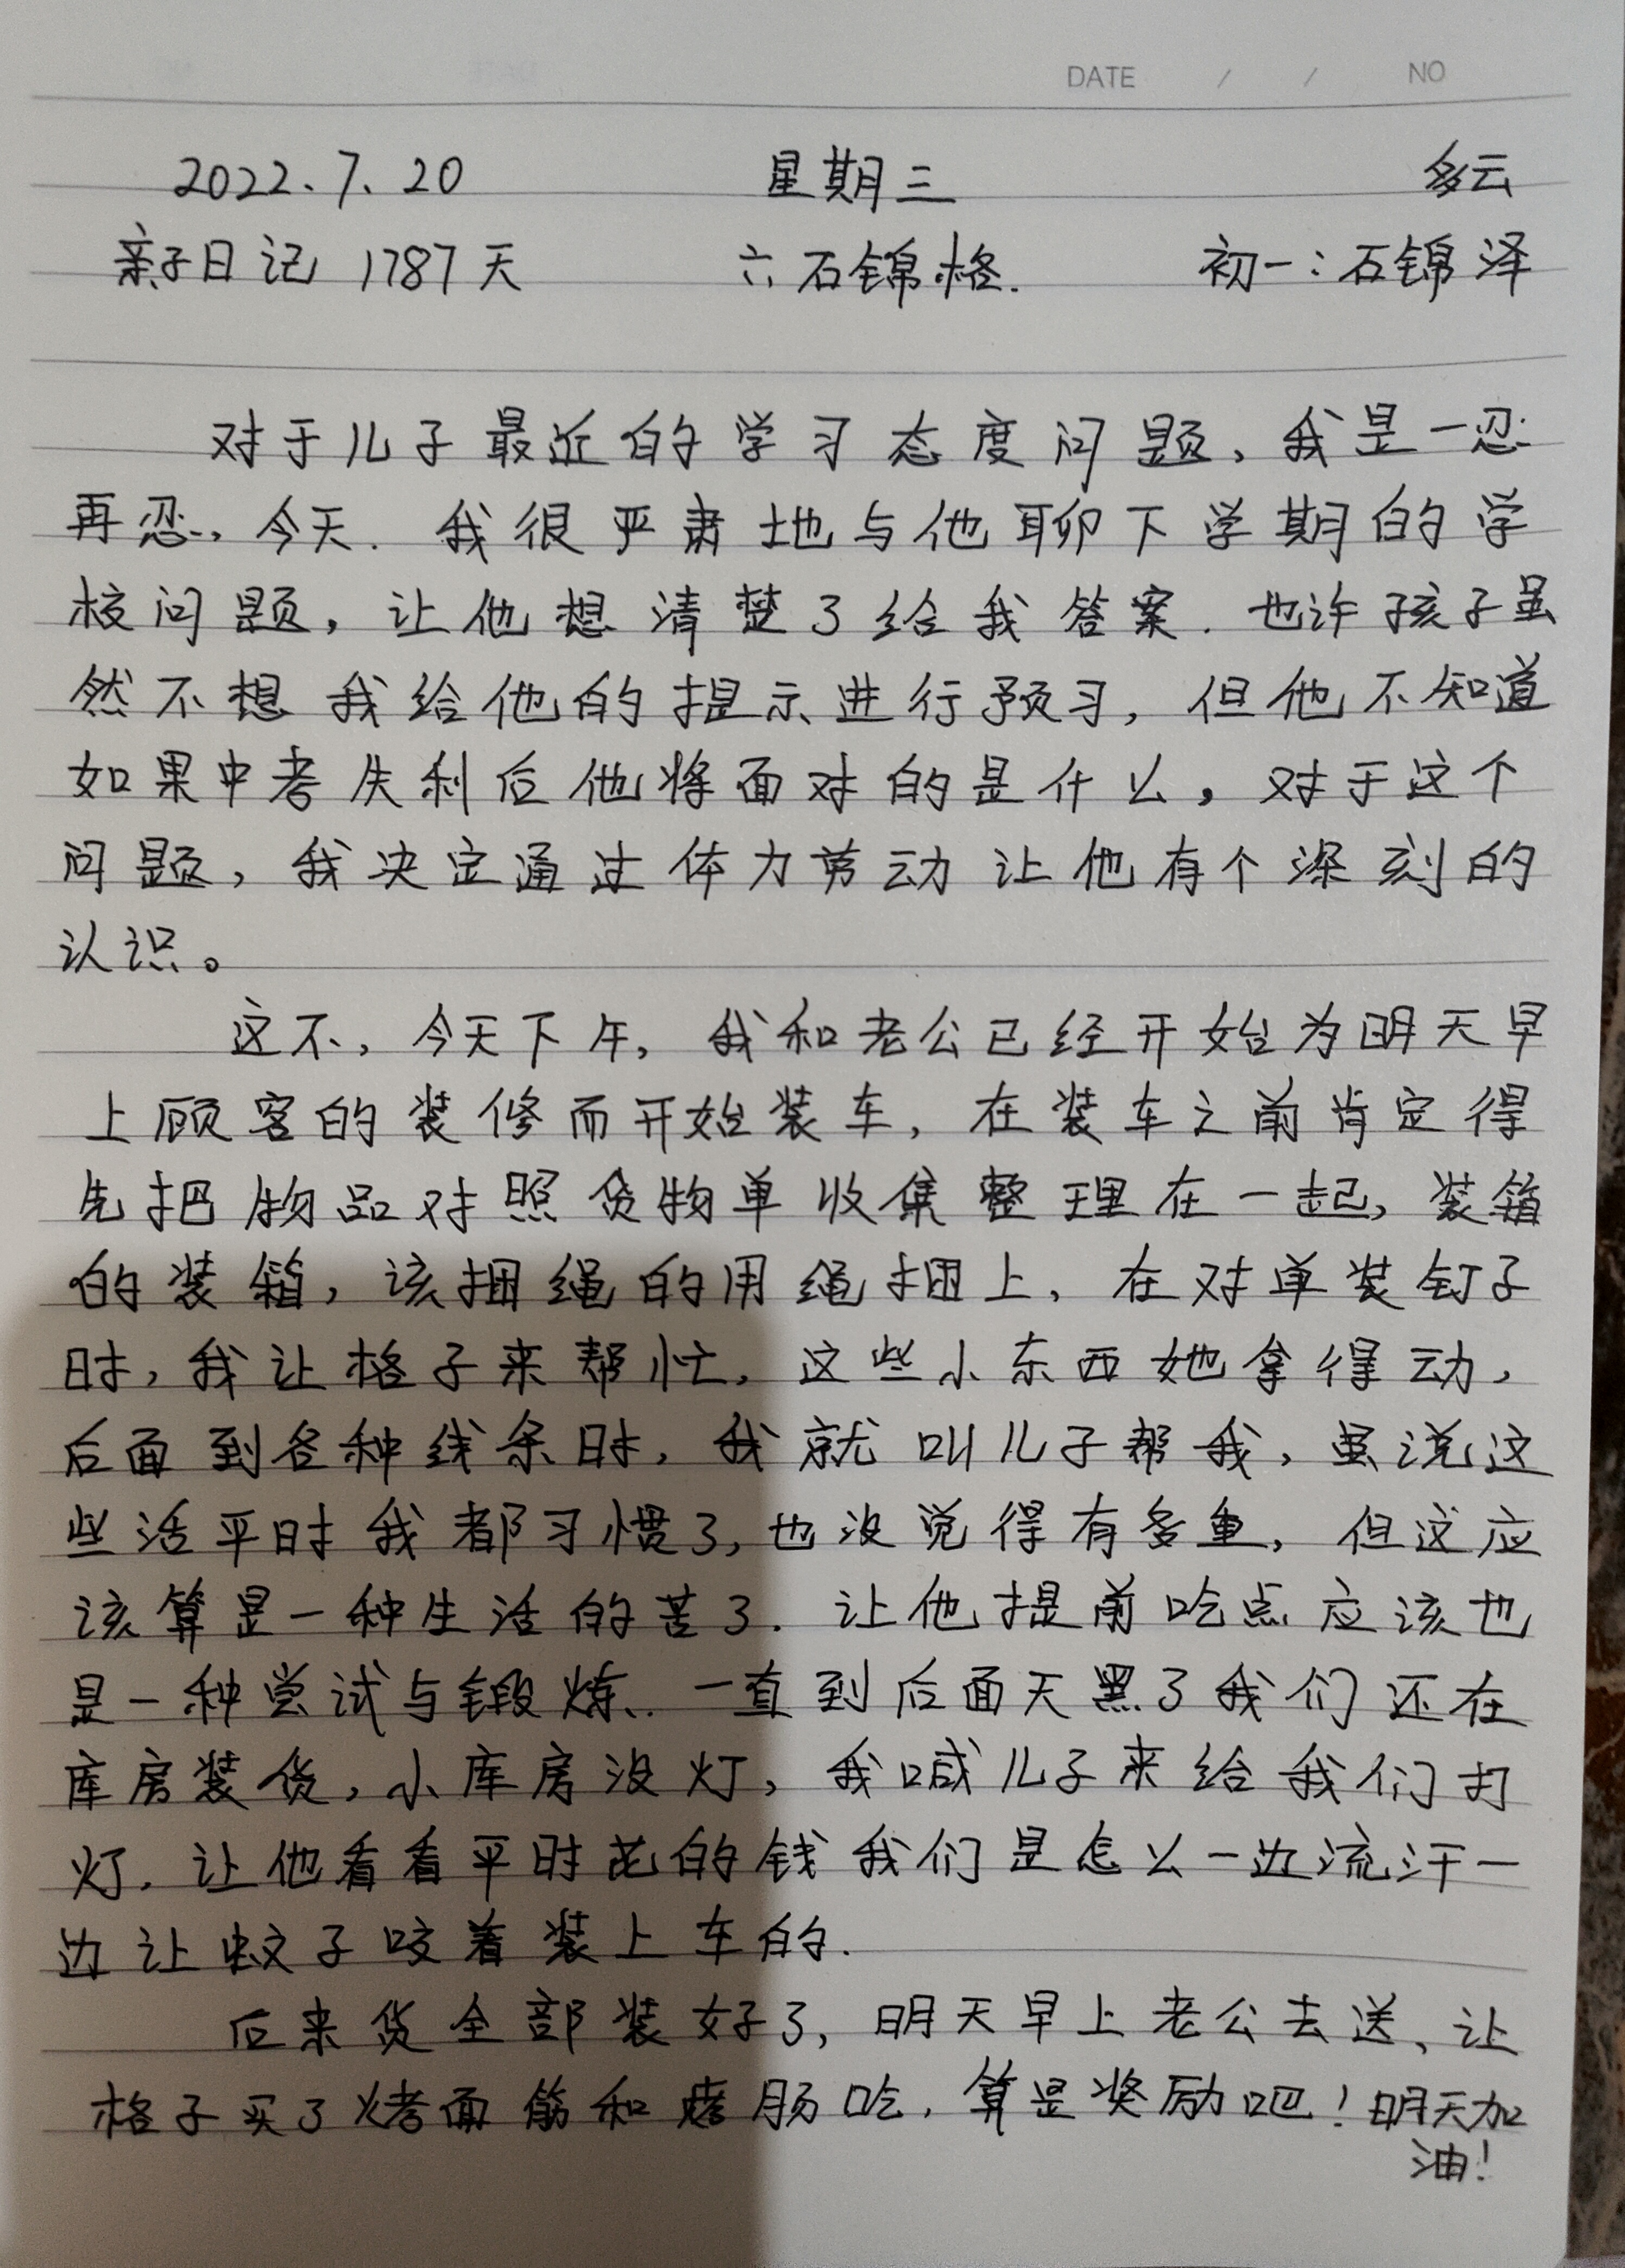 DATE / / NO
2022.7.20 星期三 多云
亲子日记 1787天 六石锦格. 初一:石锦泽
对于儿子最近的学习态度问题,我是一忍
再忍,今天.我很严肃地与他聊下学期的学
校问题,让他想清楚了给我答案.也许孩子虽
然不想我给他的提示进行预习,但他不知道
如果中考失利后他将面对的是什么,对于这个
问题,我决定通过体力劳动让他有个深刻的
认识。
这不,今天下午,我和老公已经开始为明天早
上顾客的装修而开始装车,在装车之前肯定得
先把物品对照货物单收集整理在一起,装箱
的装箱,该捆绳的用绳捆上,在对单装钉子
时,我让格子来帮忙,这些小东西她拿得动,
后面到各种线条时,我就叫儿子帮我,虽说这
些活平时我都习惯了,也没觉得有多重,但这应
该算是一种生活的苦了.让他提前吃点应该也
是一种尝试与锻炼.一直到后面天黑了我们还在
库房装货,小库房没灯,我喊儿子来给我们打
灯.让他看看平时花的钱我们是怎么一边流汗一
边让蚊子咬着装上车的.
后来货全部装好了,明天早上老公去送、让
格子买了烤面筋和烤肠吃,算是奖励吧!明天加
油!